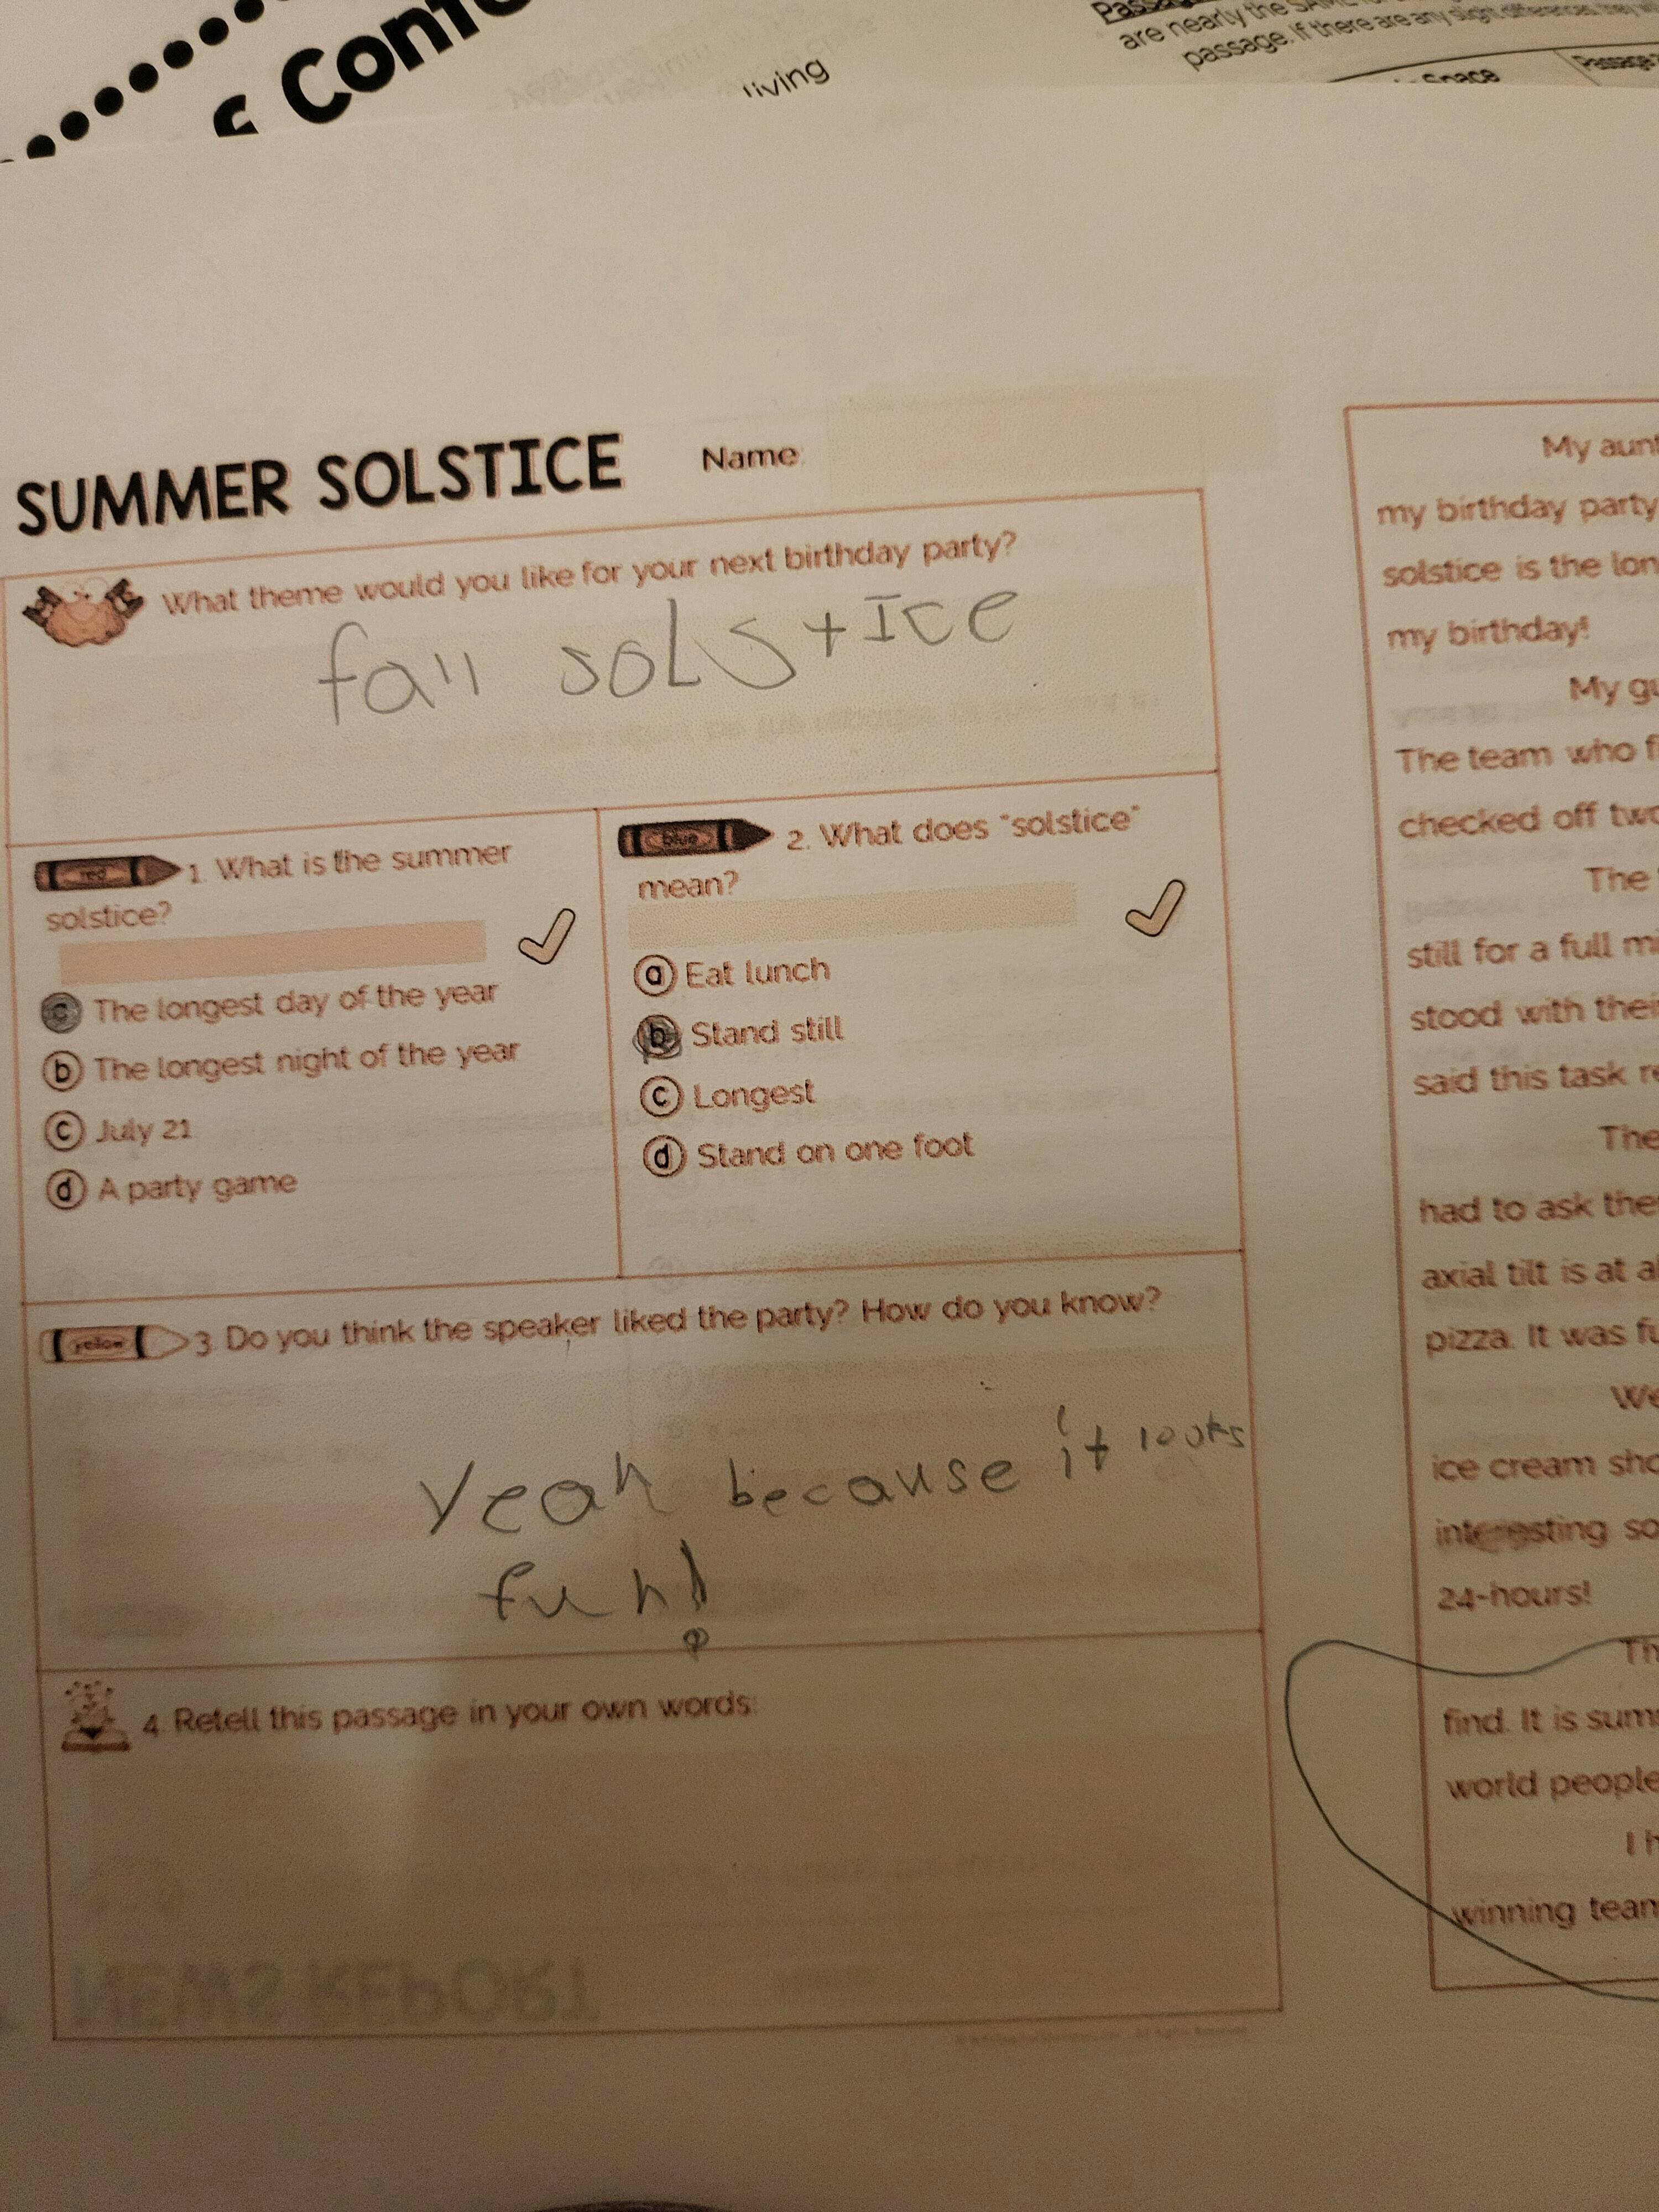 Conf
living
are nearly the SAME
passage. If there are any slight differences, they
Space
Passage
SUMMER SOLSTICE
Name:
What theme would you like for your next birthday party?
fall soLstIce
red
1. What is the summer
solstice?
c The longest day of the year
b The longest night of the year
c July 21
d A party game
blue
2. What does "solstice"
mean?
a Eat lunch
b Stand still
c Longest
d Stand on one foot
yellow
3. Do you think the speaker liked the party? How do you know?
Yeah because it looks
fun!
4. Retell this passage in your own words:
NEWS REPORT
My aunt
my birthday party
solstice is the lon
my birthday!
My gu
The team who fi
checked off two
The
still for a full mi
stood with their
said this task re
The
had to ask the
axial tilt is at a
pizza. It was fu
We
ice cream sho
interesting so
24-hours!
Th
find. It is summ
world people
I h
winning team